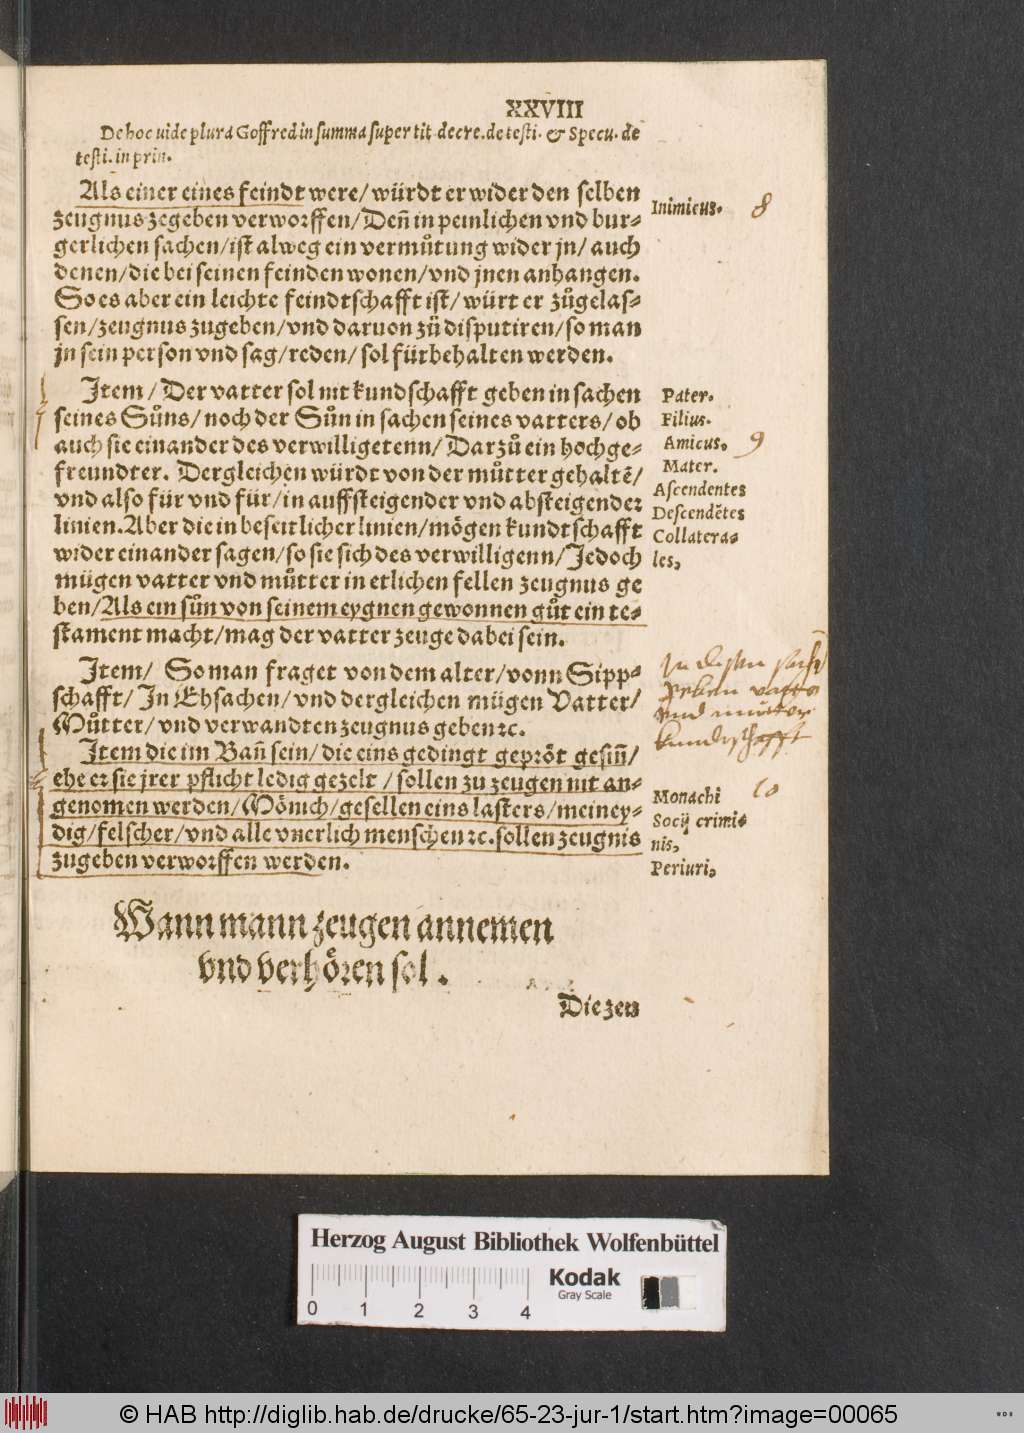 XXVIII
De hoc uide plura Goffred in summa super tit. decre. de testi. & Specu. de
testi. in prin.
Als einer eines feindt were/ würdt er wider den selben
zeugnus zegeben verworffen/ Deñ in peinlichen vnd bur-
gerlichen sachen/ ist alweg ein vermůtung wider jn/ auch
denen/ die bei seinen feinden wonen/ vnd jnen anhangen.
So es aber ein leichte feindtschafft ist/ würt er zůgelas-
sen/ zeugnus zugeben/ vnd daruon zů disputiren/ so man
jn sein person vnd sag/ reden/ sol fürbehalten werden.
Inimicus. 8
Item/ Der vatter sol nit kundschafft geben in sachen
seines Sůns/ noch der Sůn in sachen seines vatters/ ob
auch sie einander des verwilligetenn/ Darzů ein hochge-
freundter. Dergleichen würdt von der můtter gehaltẽ/
vnd also für vnd für/ in auffsteigender vnd absteigender
linien. Aber die in beseitlicher linien/ mögen kundtschafft
wider einander sagen/ so sie sich des verwilligenn/ Jedoch
mügen vatter vnd můtter in etlichen fellen zeugnus ge
ben/ Als ein sůn von seinem eygnen gewonnen gůt ein te-
stament macht/ mag der vatter zeuge dabei sein.
Pater.
Filius.
Amicus, 9
Mater.
Ascendentes
Descendẽtes
Collatera-
les,
Item/ So man fraget von dem alter/ vonn Sipp-
schafft/ In Ehsachen/ vnd dergleichen mügen Vatter/
Můtter/ vnd verwandten zeugnus geben ꝛc.
In disen sachen
geben vatter
vnd mutter
kundtschafft
Item die im Bañ sein/ die eins gedingt gepröt gesiñ/
ehe er sie jrer pflicht ledig gezelt/ sollen zu zeugen nit an-
genomen werden/ Mönich/ gesellen eins lasters/ meiney-
dig/ felscher/ vnd alle vnerlich menschen ꝛc. sollen zeugnis
zugeben verworffen werden.
Monachi 10
Socij crimi-
nis,
Periuri,
Wann mann zeugen annemen
vnd verhören sol.
Die zeu
Herzog August Bibliothek Wolfenbüttel
0 1 2 3 4
Kodak
Gray Scale
© HAB http://diglib.hab.de/drucke/65-23-jur-1/start.htm?image=00065